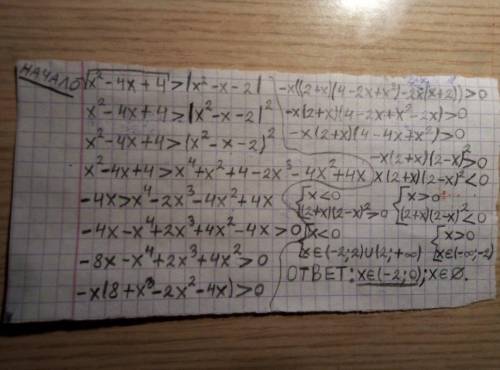 НАЧАЛО √x²-4x+4 > |x²-x-2|
x²-4x+4 > |x²-x-2|²
x²-4x+4 > (x²-x-2)²
x²-4x+4 > x⁴+x²+4-2x³-4x²+4x
-4x > x⁴-2x³-4x²+4x
-4x-x⁴+2x³+4x²-4x > 0
-8x-x⁴+2x³+4x² > 0
-x(8+x³-2x²-4x) > 0
-x((2+x)(4-2x+x²)-2x(x+2)) > 0
-x(2+x)(4-2x+x²-2x) > 0
-x(2+x)(4-4x+x²) > 0
-x(2+x)(2-x)² > 0
x(2+x)(2-x)² < 0
{x<0 {x>0
(2+x)(2-x)²>0 (2+x)(2-x)²<0
{x<0 {x>0
x∈(-2;2)∪(2;+∞) x∈(-∞;-2)
ОТВЕТ: x∈(-2;0); x∈∅.